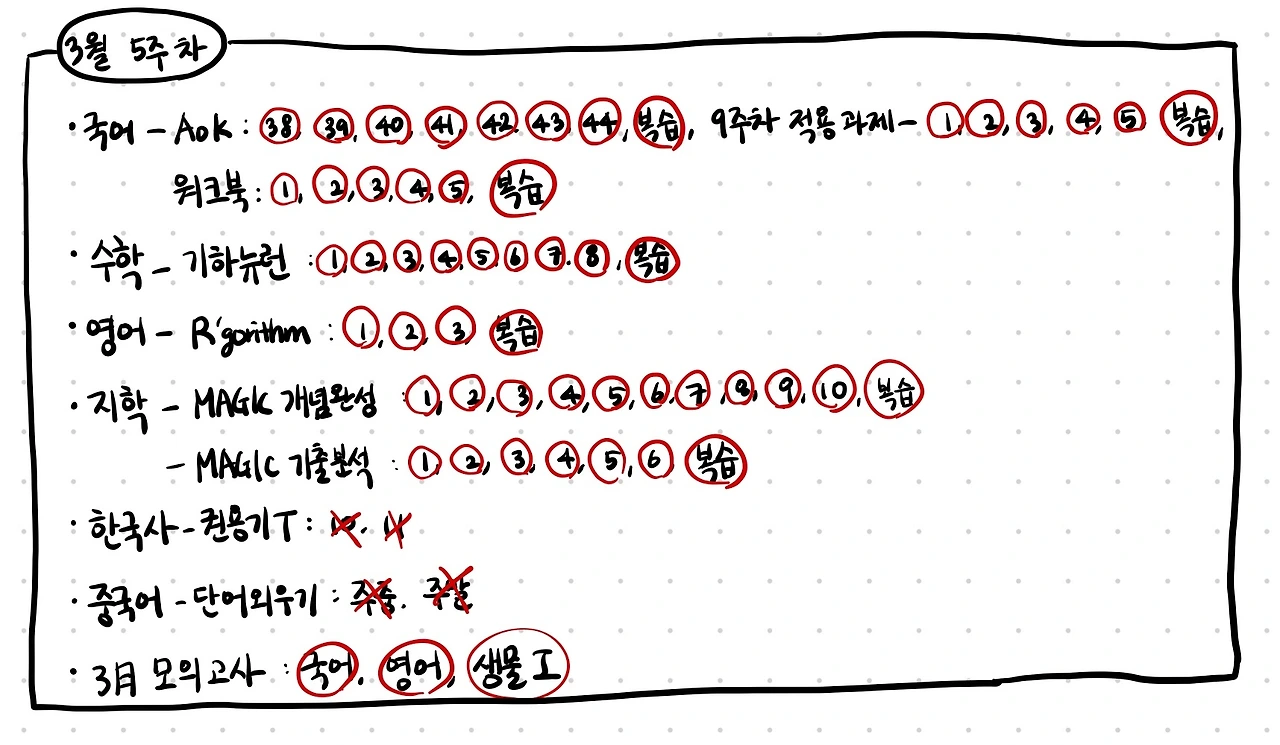 3월 5주차
·국어 - AoK : 38, 39, 40, 41, 42, 43, 44, 복습, 9주차 적용과제 - 1, 2, 3, 4, 5 복습,
워크북 : 1, 2, 3, 4, 5, 복습
·수학 - 기하뉴런 : 1, 2, 3, 4, 5, 6, 7, 8, 복습
·영어 - R'gorithm : 1, 2, 3, 복습
·지학 - MAGIC 개념완성 : 1, 2, 3, 4, 5, 6, 7, 8, 9, 10, 복습
- MAGIC 기출분석 : 1, 2, 3, 4, 5, 6 복습
·한국사 - 권용기T : 10, 11
·중국어 - 단어외우기 : 주중, 주말
·3月 모의고사 : 국어, 영어, 생물 I